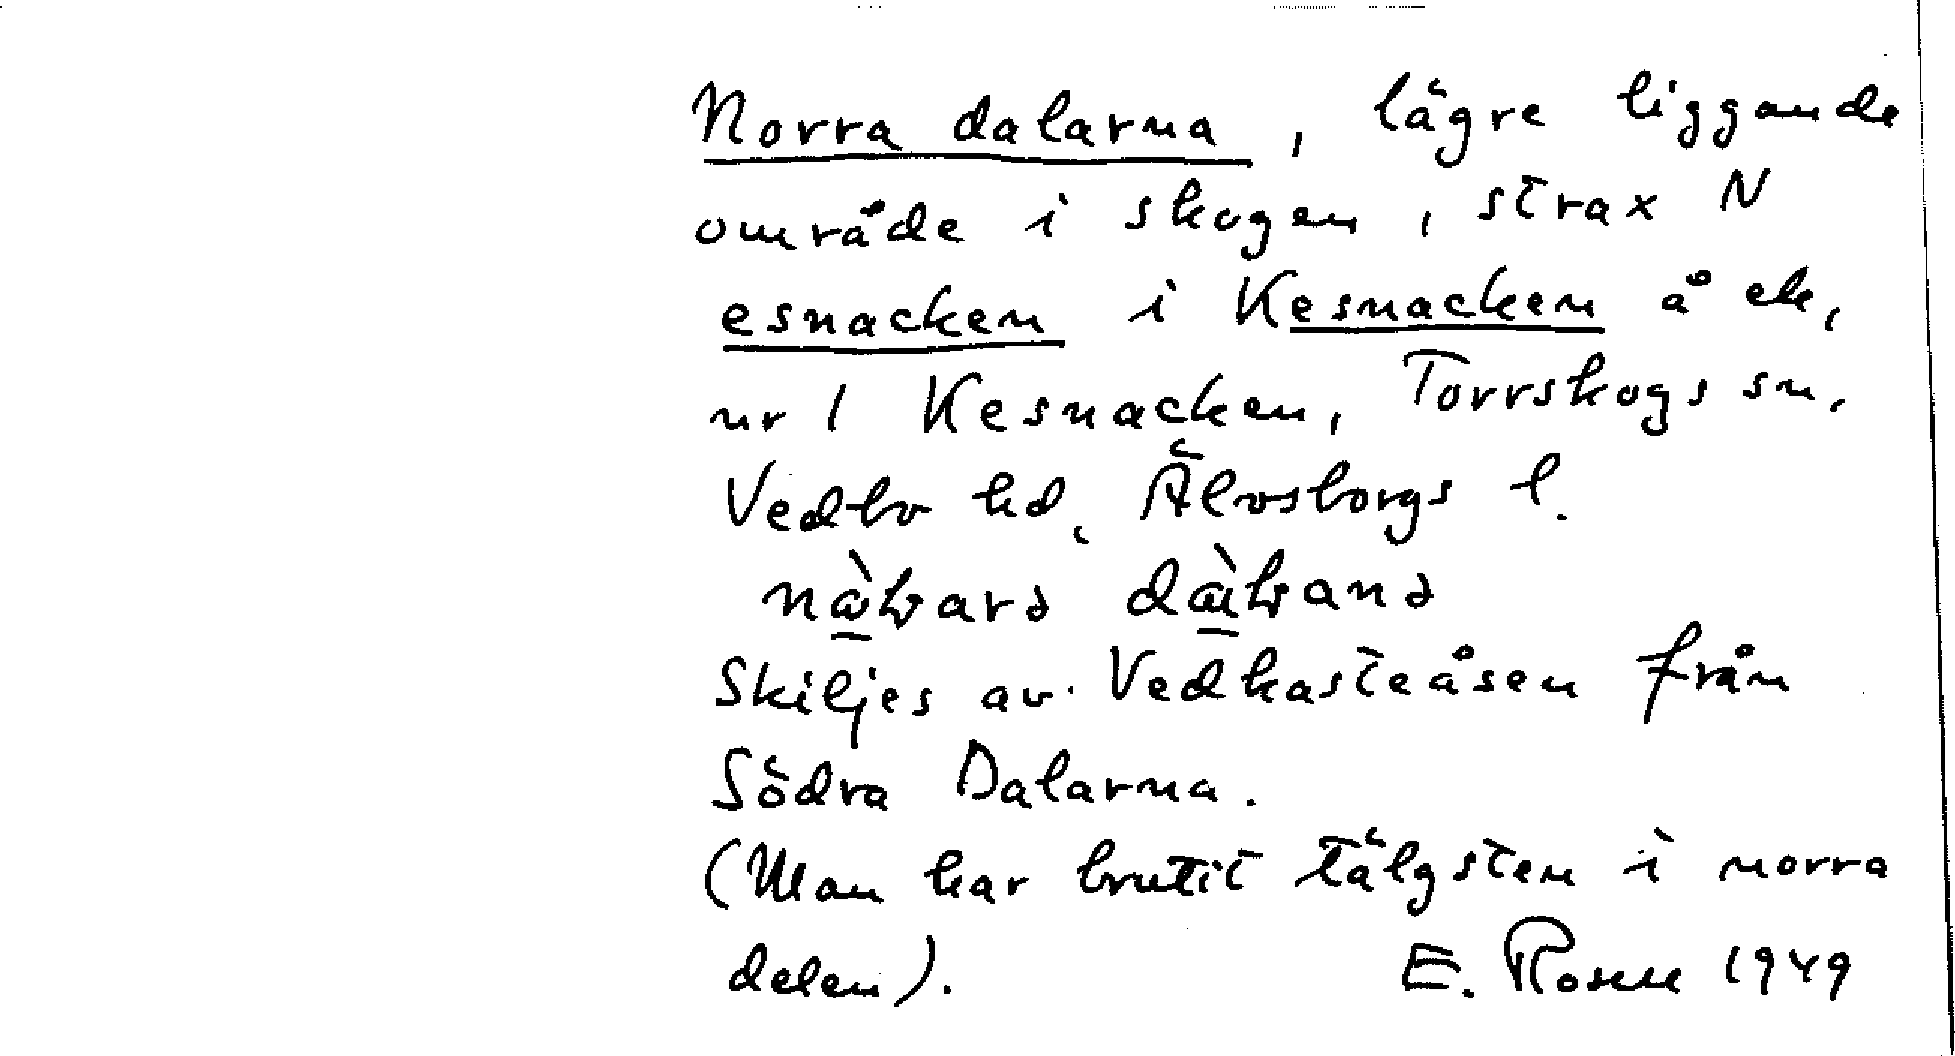 Norra dalarna, lägre liggande
område i skogen, strax N
esnacken i Kesnacken å ek,
nr 1 Kesnacken, Torrskogs sn,
Vedbo hd, Älvsborgs l.
Skiljes av Vedkasteåsen från
Södra Dalarna.
(Man har brutit tälgsten i norra
delen). E. Rosell 1949